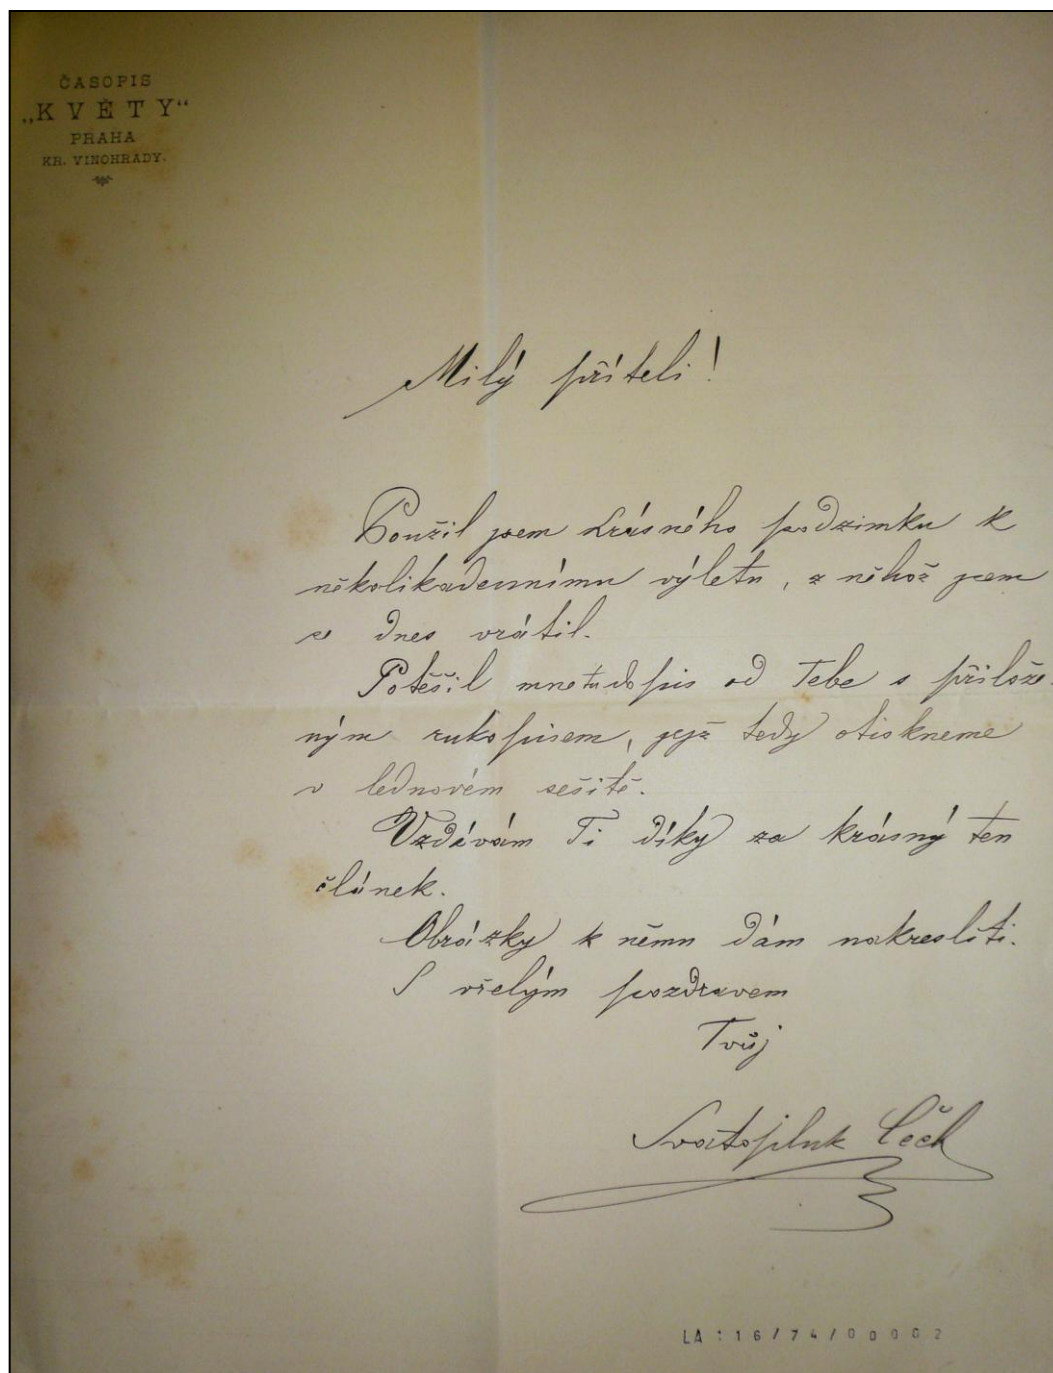 ČASOPIS
„KVĚTY“
PRAHA
KR. VINOHRADY.
Milý příteli!
Použil jsem krásného podzimku k
několikadennímu výletu, z něhož jsem
se dnes vrátil.
Potěšil mne tu dopis od Tebe s přilože-
ným rukopisem, jejž tedy otiskneme
v lednovém sešitě.
Vzdávám Ti díky za krásný ten
článek.
Obrázky k němu dám nakresliti.
S vřelým pozdravem
Tvůj
Svatopluk Čech
LA 116/74/00002